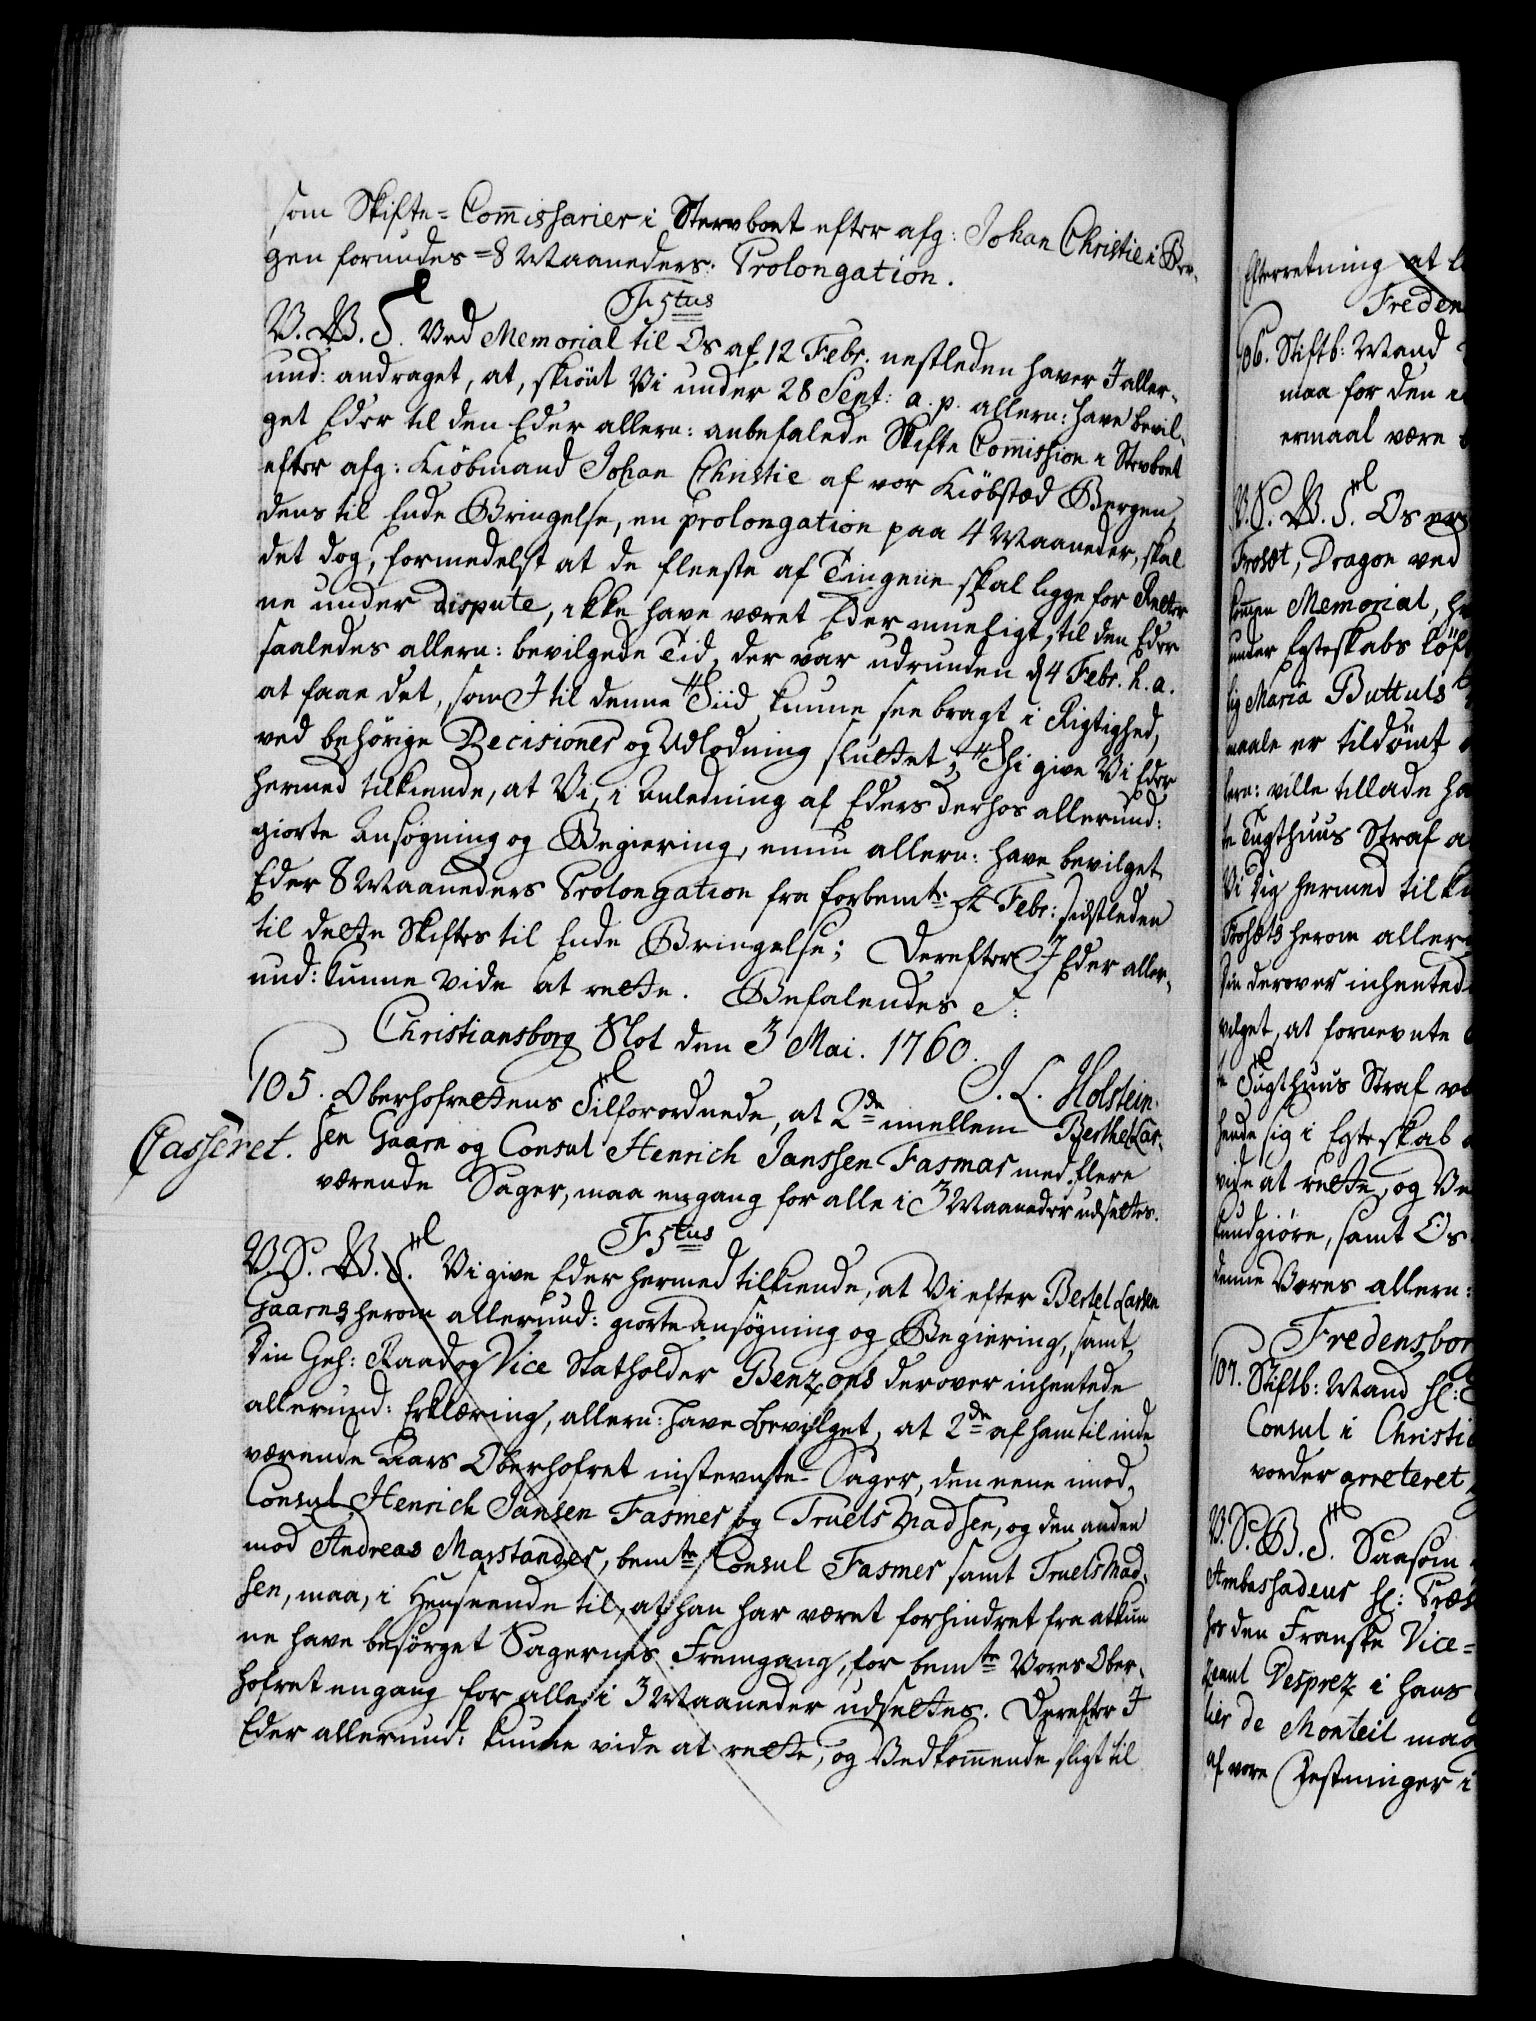 som Skifte-Com̅issarier i Stervboet efter afg: Johan Christie i Ber-
gen forundes 8 Maaneders Prolongation.
F 5tus
V. W. G. Ved Memorial til Os af 12 Febr. nestleden haver I aller-
und: andraget, at, skiönt Vi under 28 Sept: a. p. allern: have bevil-
get Eder til den Eder allern: anbefalede Skifte Com̅ission i Stervboet
efter afg: Kiöbmand Johan Christie af vor Kiöbstæd Bergen,
dens til Ende Bringelse, en prolongation paa 4 Maaneder, skal
det dog, formedelst at de fleeste af Tingene skal ligge for Retter
ne under dispute, ikke have været Eder mueligt, til den Eder
saaledes allern: bevilgede Tid, der var udrunden d 4 Febr. h. a.
at faae det, som I til denne Tiid kunne see bragt i Rigtighed,
ved behörige Decisioner og Udlodning sluttet; Thi give Vi Eder
hermed tilkiende, at Vi, i Anledning af Eders derhos allerund:
giorte Ansögning og Begiering, ennu allern: have bevilget
Eder 8 Maaneders Prolongation fra forbemte 4 Febr: sidstleden
til dette Skiftes til Ende Bringelse; Derefter I Eder aller-
und: kunne vide at rette. Befalendes
Christiansborg Slot den 3 Mai. 1760.
J. L. Holstein.
105. Oberhofrettens Tilforordnede, at 2de imellem Berthel Lar-
Casseret. sen Gaarn og Consul Henrich Janssen Fasmar med flere
værende Sager, maa engang for alle i 3 Maaneder udsættes.
F 5tus
V. S. W. G. Vi give Eder hermed tilkiende, at Vi efter Bertel Larsen
Gaarns herom allerund: giorte Ansögning og Begiering, samt
Din Geh: Raad og Vice Statholder Benzons derover inhentede
allerund: Erklæring, allern: have bevilget, at 2de af ham til inde
værende Aars Oberhofret instevnte Sager, den eene imod
Consul Henrich Jansen Fasmer og Truels Madsen, og den anden
mod Andreas Marstander, bemte Consul Fasmer samt Truels Mad-
sen, maa, i Henseende til, at han har været forhindret fra at kun
ne have besörget Sagernes Fremgang, for bemte Vores Ober-
hofret engang for alle i 3 Maaneder udsættes. Derefter I
Eder allerund: kunne vide at rette, og Vedkom̅ende sligt til
Efterretning at
Freden
106. Stiftb: Mand
maa for den
ermaal være
V. S. W. G. Os er
Frosæt, Dragon ved
Memorial,
under Egteskabs löft
lig Maria Buttuls
maale er tildömt
lern: ville tillade ha
te Tugthuus Straf a
Vi Dig hermed tilki
Frosæts herom aller
Din derover inhented
vilget, at fornevnte
te Tugthuus Straf ve
hende sig i Egteskab
vide at rette, og Ve
kundgiöre, samt Os
denne Vores allern:
Fredensbor
107. Stiftb: Mand
Consul i Christi
vorder arreteret
V. S. W. G. Saasom
Ambassadeur
hos den Franske Vice-
Desprez i hans
lier de Monteil maa
af vore Festninger i